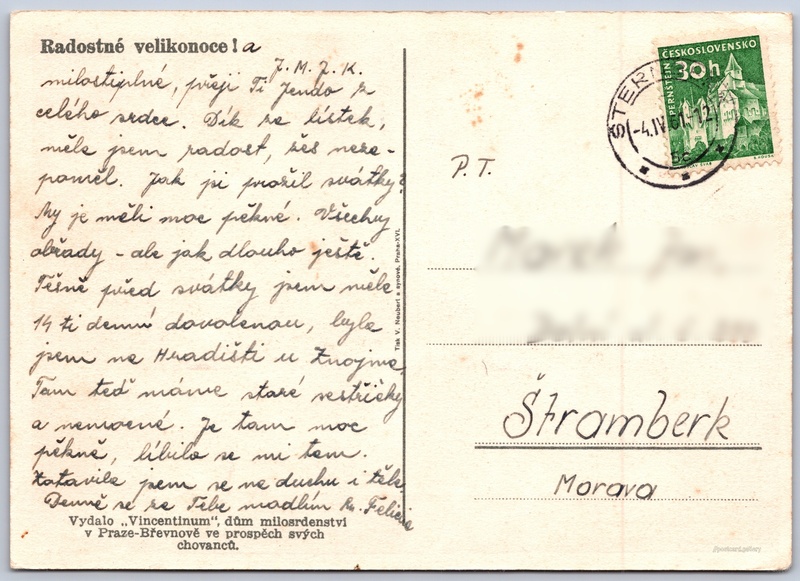 Radostné velikonoce! a
J. M. J. K.
milostiplné, přeji Ti Jendo z
celého srdce. Dík za lístek,
měla jsem radost, žes neza-
poměl. Jak jsi prožil svátky?
My je měli moc pěkné. Všechny
obřady - ale jak dlouho ještě.
Těšně před svátky jsem měla
14 ti denní dovolenou, byla
jsem na Hradišti u Znojma,
Tam teď máme staré sestřičky
a nemocné. Je tam moc
pěkně, líbilo se mi tam.
Zotavila jsem se na duchu i těle
Denně se za Tebe modlím Felicie
Vydalo „Vincentinum", dům milosrdenství
v Praze-Břevnově ve prospěch svých
chovanců.
Tisk V. Neubert a synové, Praha-XVI.
ČESKOSLOVENSKO
30h
PERNŠTEJN
ŠTERN
-4.IV.61.-12
P. T.
Štramberk
Morava